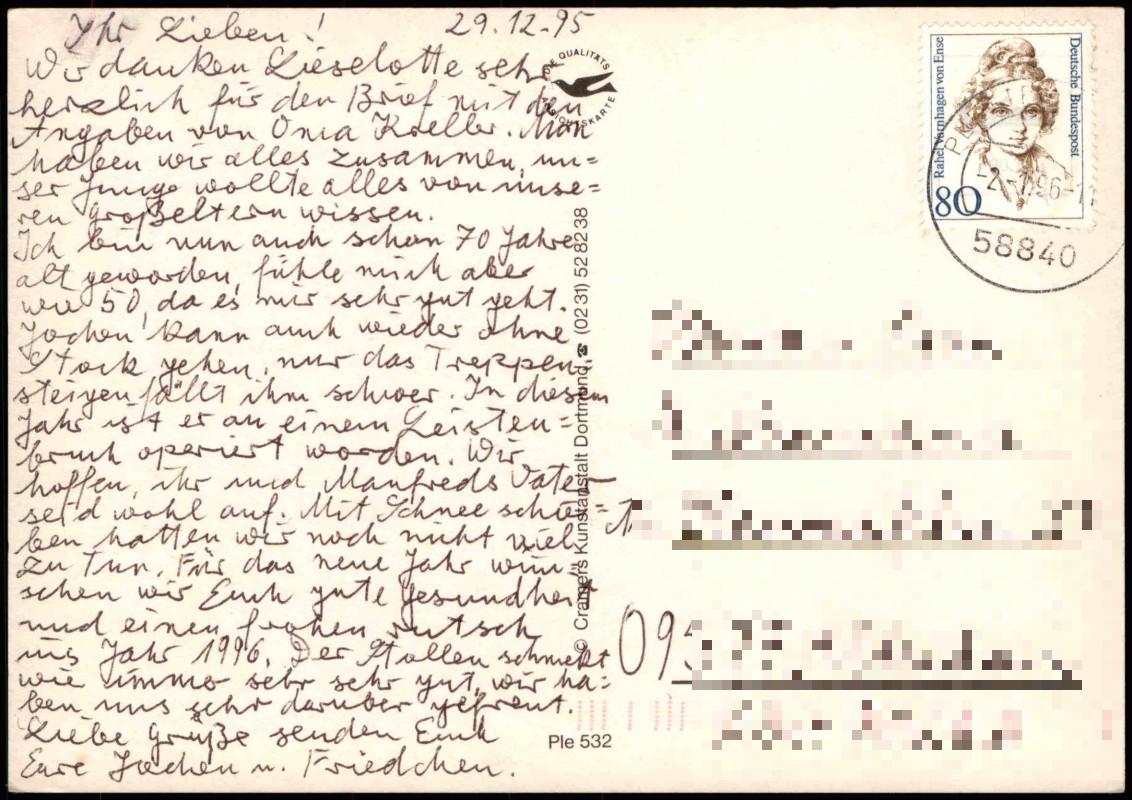 Ihr Lieben! 29.12.95
Wir danken Lieselotte sehr
herzlich für den Brief mit den
Angaben von Oma Kreller. Nun
haben wir alles zusammen, un=
ser Junge wollte alles von unse=
ren Großeltern wissen.
Ich bin nun auch schon 70 Jahre
alt geworden, fühle mich aber
wie 50, da es mir sehr gut geht.
Jochen kann auch wieder ohne
Stock gehen, nur das Treppen=
steigen fällt ihm schwer. In diesem
Jahr ist er an einem Leisten=
bruch operiert worden. Wir
hoffen, ihr und Manfreds Vater
seid wohl auf. Mit Schnee schie=
ben hatten wir noch nicht viel
zu tun. Für das neue Jahr wün=
schen wir Euch gute Gesundheit
und einen frohen Rutsch
ins Jahr 1996. Der Stollen schmekt
wie immer sehr sehr gut, wir ha=
ben uns sehr darüber gefreut.
Liebe Grüße senden Euch
Eure Jochen u. Friedchen.
DIE QUALITÄTS
ANSICHTSKARTE
© Cramers Kunstanstalt Dortmund, ☎ (0231) 528238
Ple 532
Rahel Varnhagen von Ense
Deutsche Bundespost
80
-2.-1.96-
58840
095